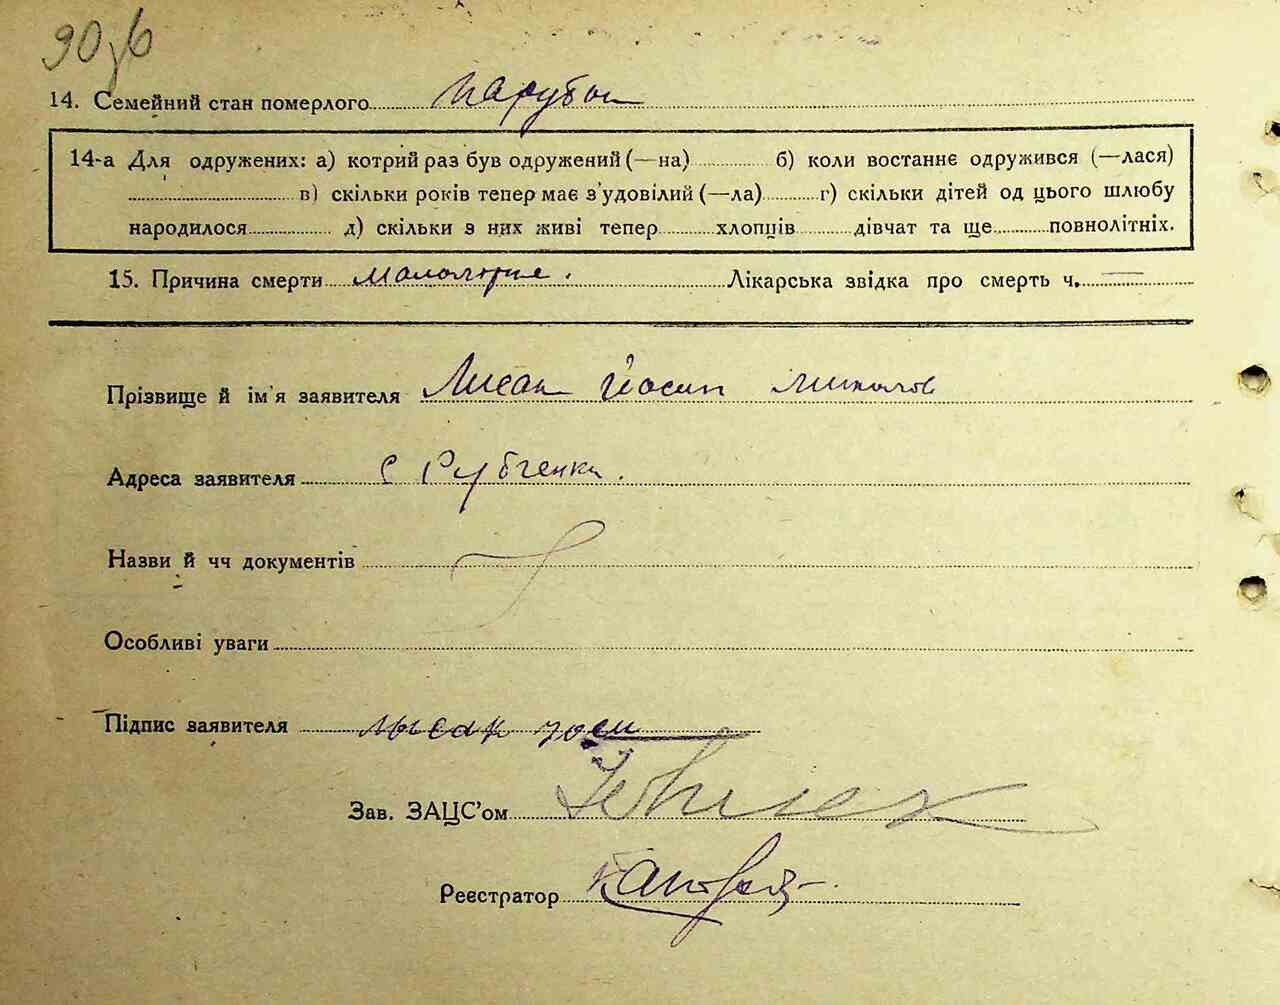 14. Семейний стан померлого парубок
14-а Для одружених: а) котрий раз був одружений (—на) б) коли востаннє одружився (—лася)
в) скільки років тепер має з'удовілий (—ла) г) скільки дітей од цього шлюбу
народилося д) скільки з них живі тепер хлопців дівчат та ще повнолітніх.
15. Причина смерти Лікарська звідка про смерть ч. —
Прізвище й ім'я заявителя Лисак Йосип
Адреса заявителя с Рубченки.
Назви й чч документів
Особливі уваги
Підпис заявителя лысак
Зав. ЗАЦС'ом
Реєстратор